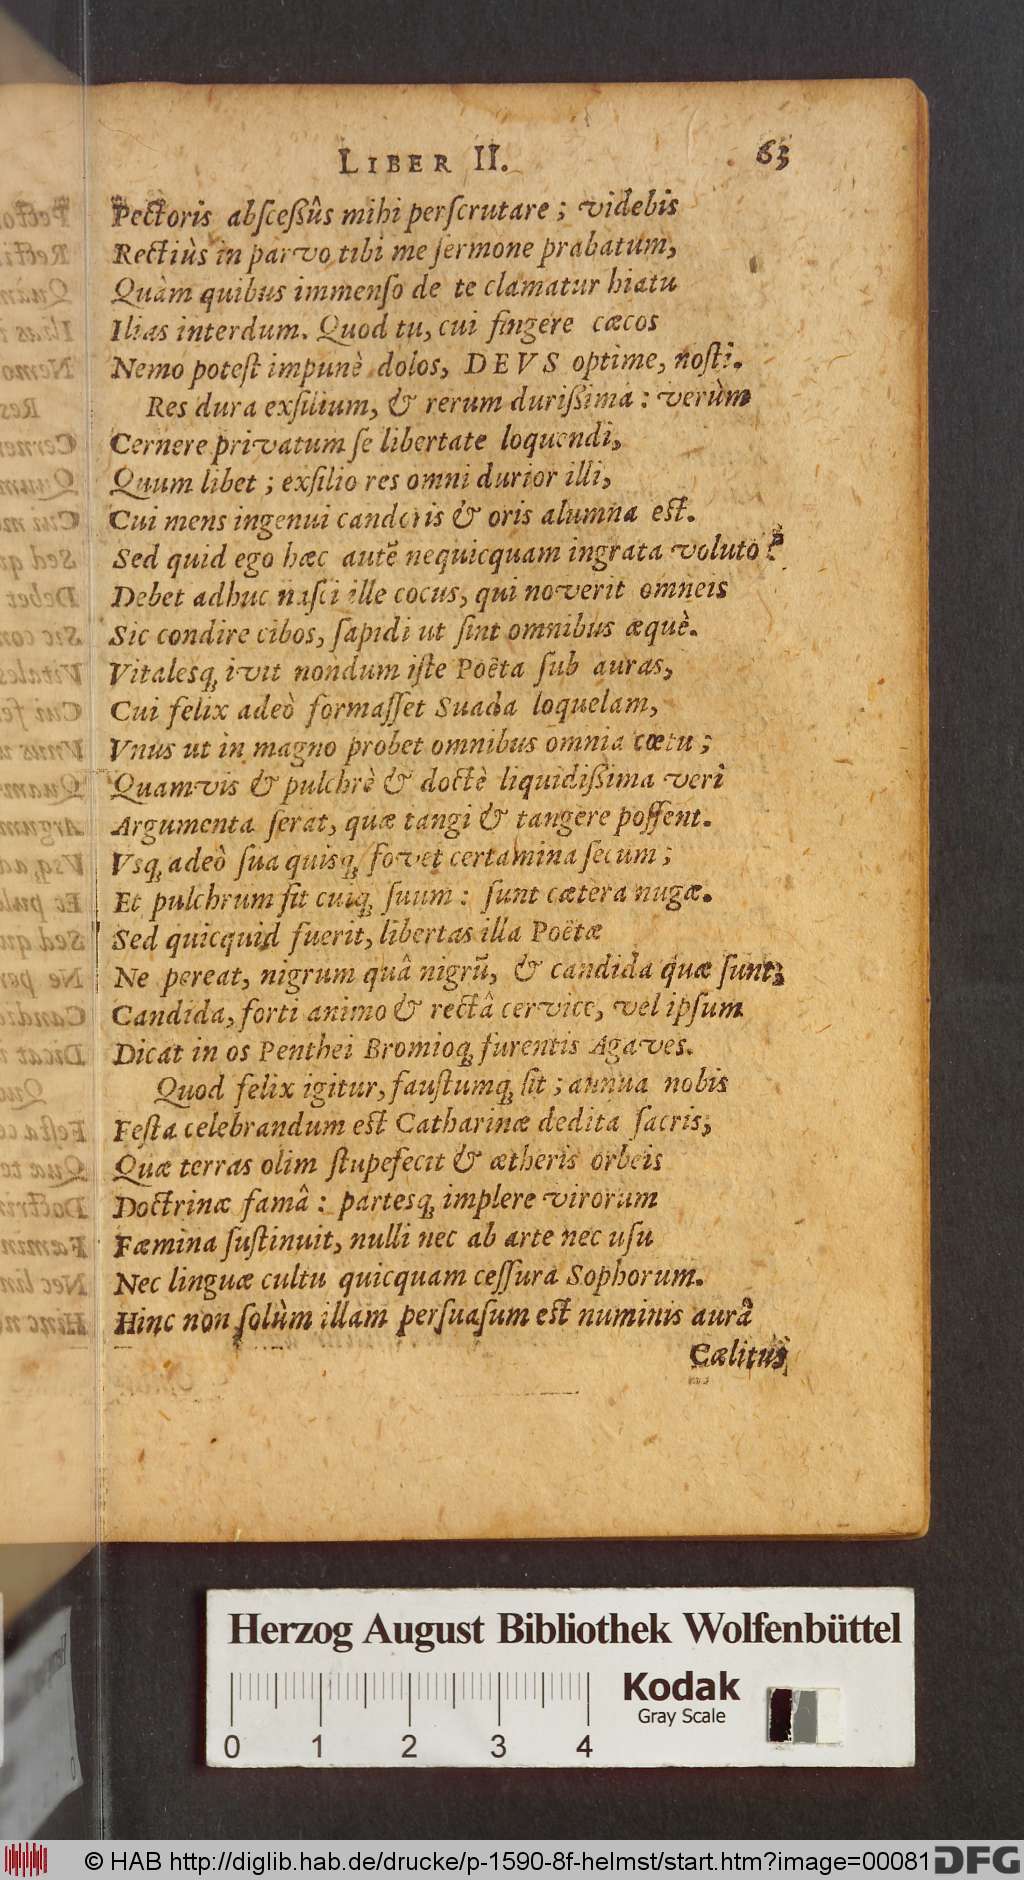 LIBER II. 63
Pectoris absceßûs mihi perscrutare; videbis
Rectiùs in parvo tibi me sermone probatum,
Quàm quibus immenso de te clamatur hiatu
Ilias interdum. Quod tu, cui fingere cæcos
Nemo potest impunè dolos, DEVS optime, nosti.
Res dura exsilium, & rerum durißima: verùm
Cernere privatum se libertate loquendi,
Quum libet; exsilio res omni durior illi,
Cui mens ingenui candoris & oris alumna est.
Sed quid ego hæc autē nequicquam ingrata voluto?
Debet adhuc nasci ille cocus, qui noverit omneis
Sic condire cibos, sapidi ut sint omnibus æquè.
Vitalesq; ivit nondum iste Poëta sub auras,
Cui felix adeò formasset Suada loquelam,
Vnus ut in magno probet omnibus omnia cœtu;
Quamvis & pulchrè & doctè liquidißima veri
Argumenta serat, quæ tangi & tangere possent.
Vsq; adeò sua quisq; fovet certamina secum;
Et pulchrum sit cuiq; suum: sunt cætera nugæ.
Sed quicquid fuerit, libertas illa Poëtæ
Ne pereat, nigrum quâ nigrū, & candida quæ sunt;
Candida, forti animo & rectâ cervice, vel ipsum
Dicat in os Penthei Bromioq; furentis Agaves.
Quod felix igitur, faustumq; sit; annua nobis
Festa celebrandum est Catharinæ dedita sacris;
Quæ terras olim stupefecit & ætheris orbeis
Doctrinæ famâ: partesq; implere virorum
Fæmina sustinuit, nulli nec ab arte nec usu
Nec linguæ cultu quicquam cessura Sophorum.
Hinc non solùm illam persuasum est numinis aurâ
Cælitus
Herzog August Bibliothek Wolfenbüttel
Kodak
Gray Scale
0 1 2 3 4
© HAB http://diglib.hab.de/drucke/p-1590-8f-helmst/start.htm?image=00081 DFG